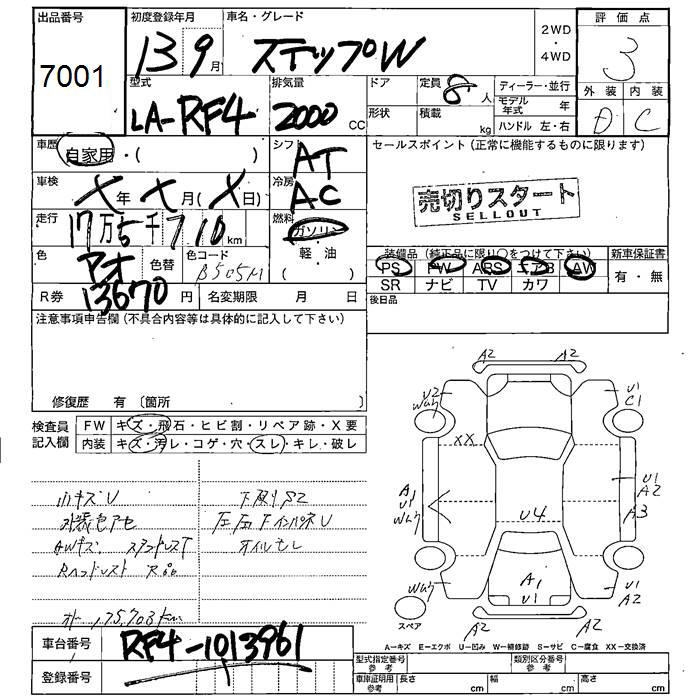 出品番号
7001
初度登録年月
13 9月
車名・グレード
ステップW
2WD
・
4WD
評価点
3
外装 内装
D C
型式
LA-RF4
排気量
2000 CC
ドア
定員 8人
形状
積載 kg
ディーラー・並行
モデル年式 年
ハンドル 左・右
車歴
自家用・( )
シフト
AT
車検
X年 X月(X日)
冷房
AC
走行
17万5千710km
燃料
ガソリン
軽・油
( )
色
アオ
色替
色コード
B505M
R券
13670円
名変期限 月 日
セールスポイント(正常に機能するものに限ります)
売切りスタート
SELLOUT
装備品(純正品に限り○をつけて下さい)
PS PW ABS エアB AW
SR ナビ TV カワ
新車保証書
有・無
後日品
注意事項申告欄(不具合内容等は具体的に記入して下さい)
修復歴 有 〔箇所 〕
検査員記入欄
FW キズ・飛石・ヒビ割・リペア跡・X要
内装 キズ・汚レ・コゲ・穴・スレ・キレ・破レ
小キズU
下廻りS2
外装色アセ
AWキズ
オイルモレ
車台番号
RF4-1013961
登録番号
A2 A2
U2
U1
C1
XX
A1
U1
U1
A2
A3
U4
A1
U1
U1
A2
A2 A2
スペア
A-キズ E-エクボ U-凹み W-補修跡 S-サビ C-腐食 XX-交換済
型式指定番号 参考
類別区分番号 参考
車庫証明用 参考
長さ cm
幅 cm
高さ cm